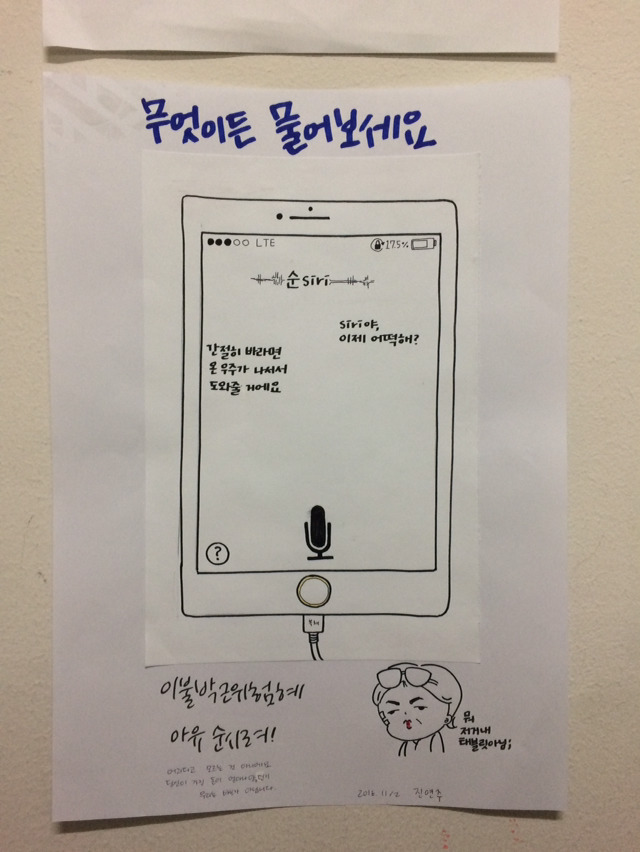 무엇이든 물어보세요
LTE
17.5%
순siri
siri야,
이제 어떡해?
간절히 바라면
온 우주가 나서서
도와줄 거에요
?
이불박근위험혜
아유 순시려!
뭐
저거내
태블릿아님;
어리다고 모르는 건 아니에요
2016.11/2 진연주